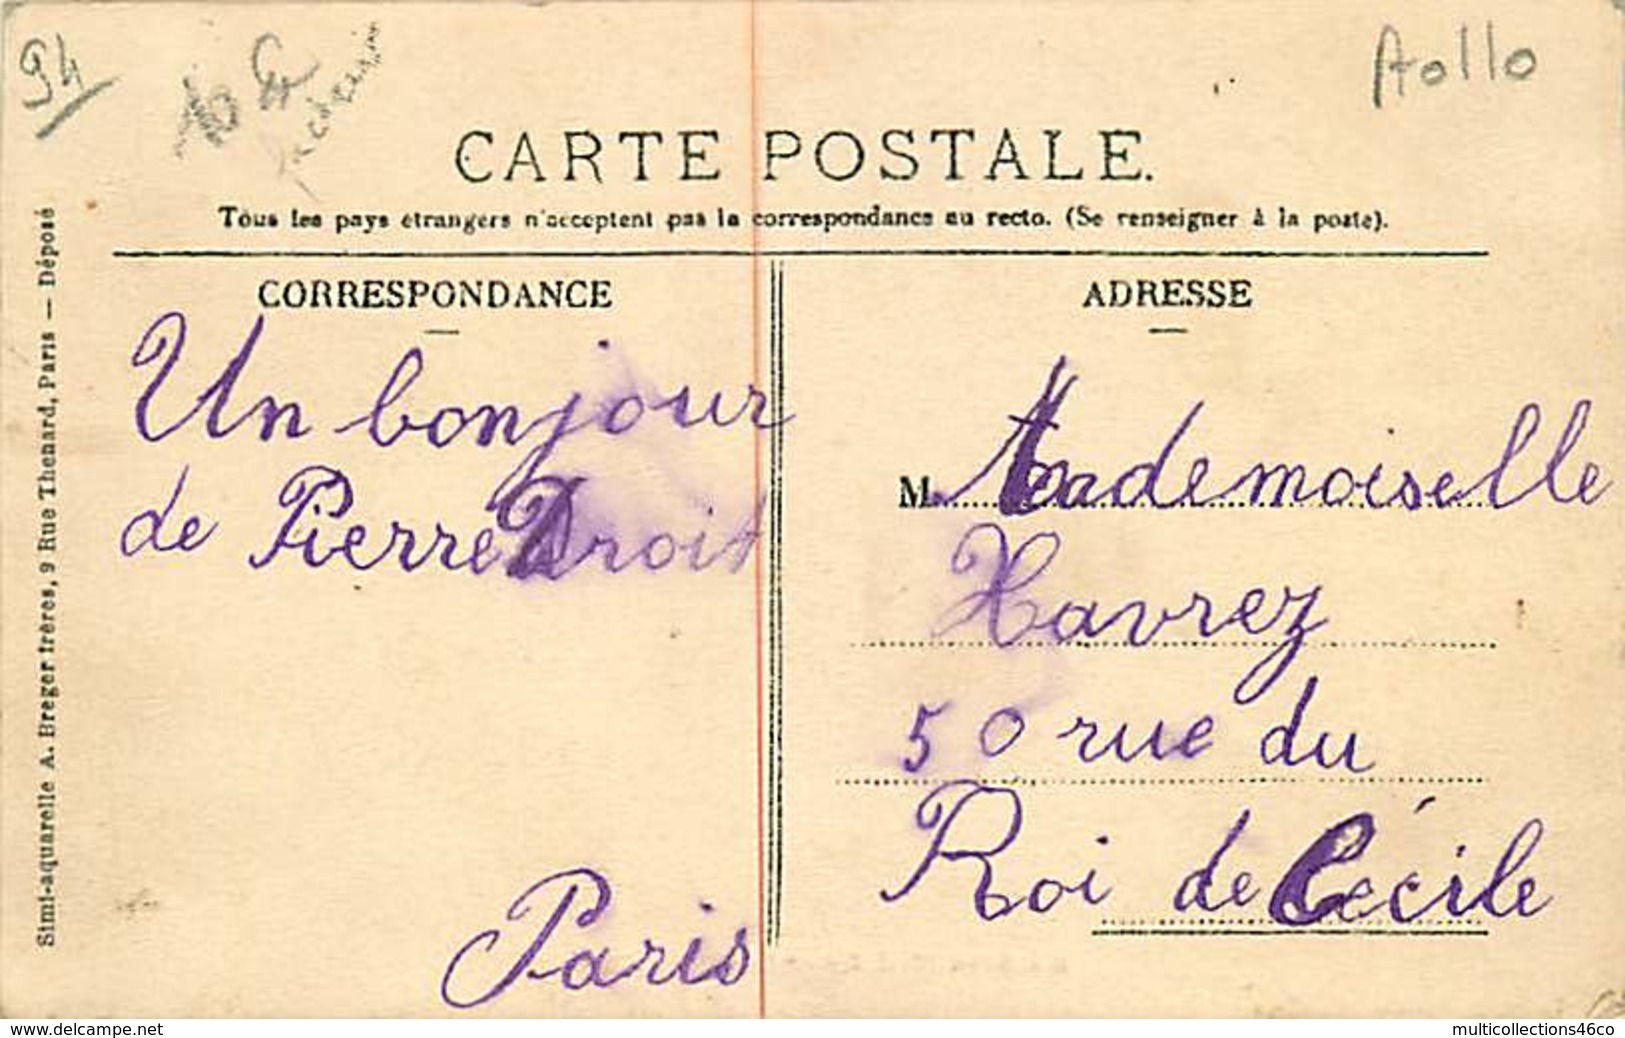 94
Aollo
CARTE POSTALE.
Tous les pays étrangers n'acceptent pas la correspondance au recto. (Se renseigner à la poste).
CORRESPONDANCE
Un bonjour
de Pierre Droit
Paris
ADRESSE
M. Mademoiselle
Havrez
50 rue du
Roi de Cécile
Simi-aquarelle A. Breger frères, 9 Rue Thenard, Paris — Déposé
www.delcampe.net
multicollections46co